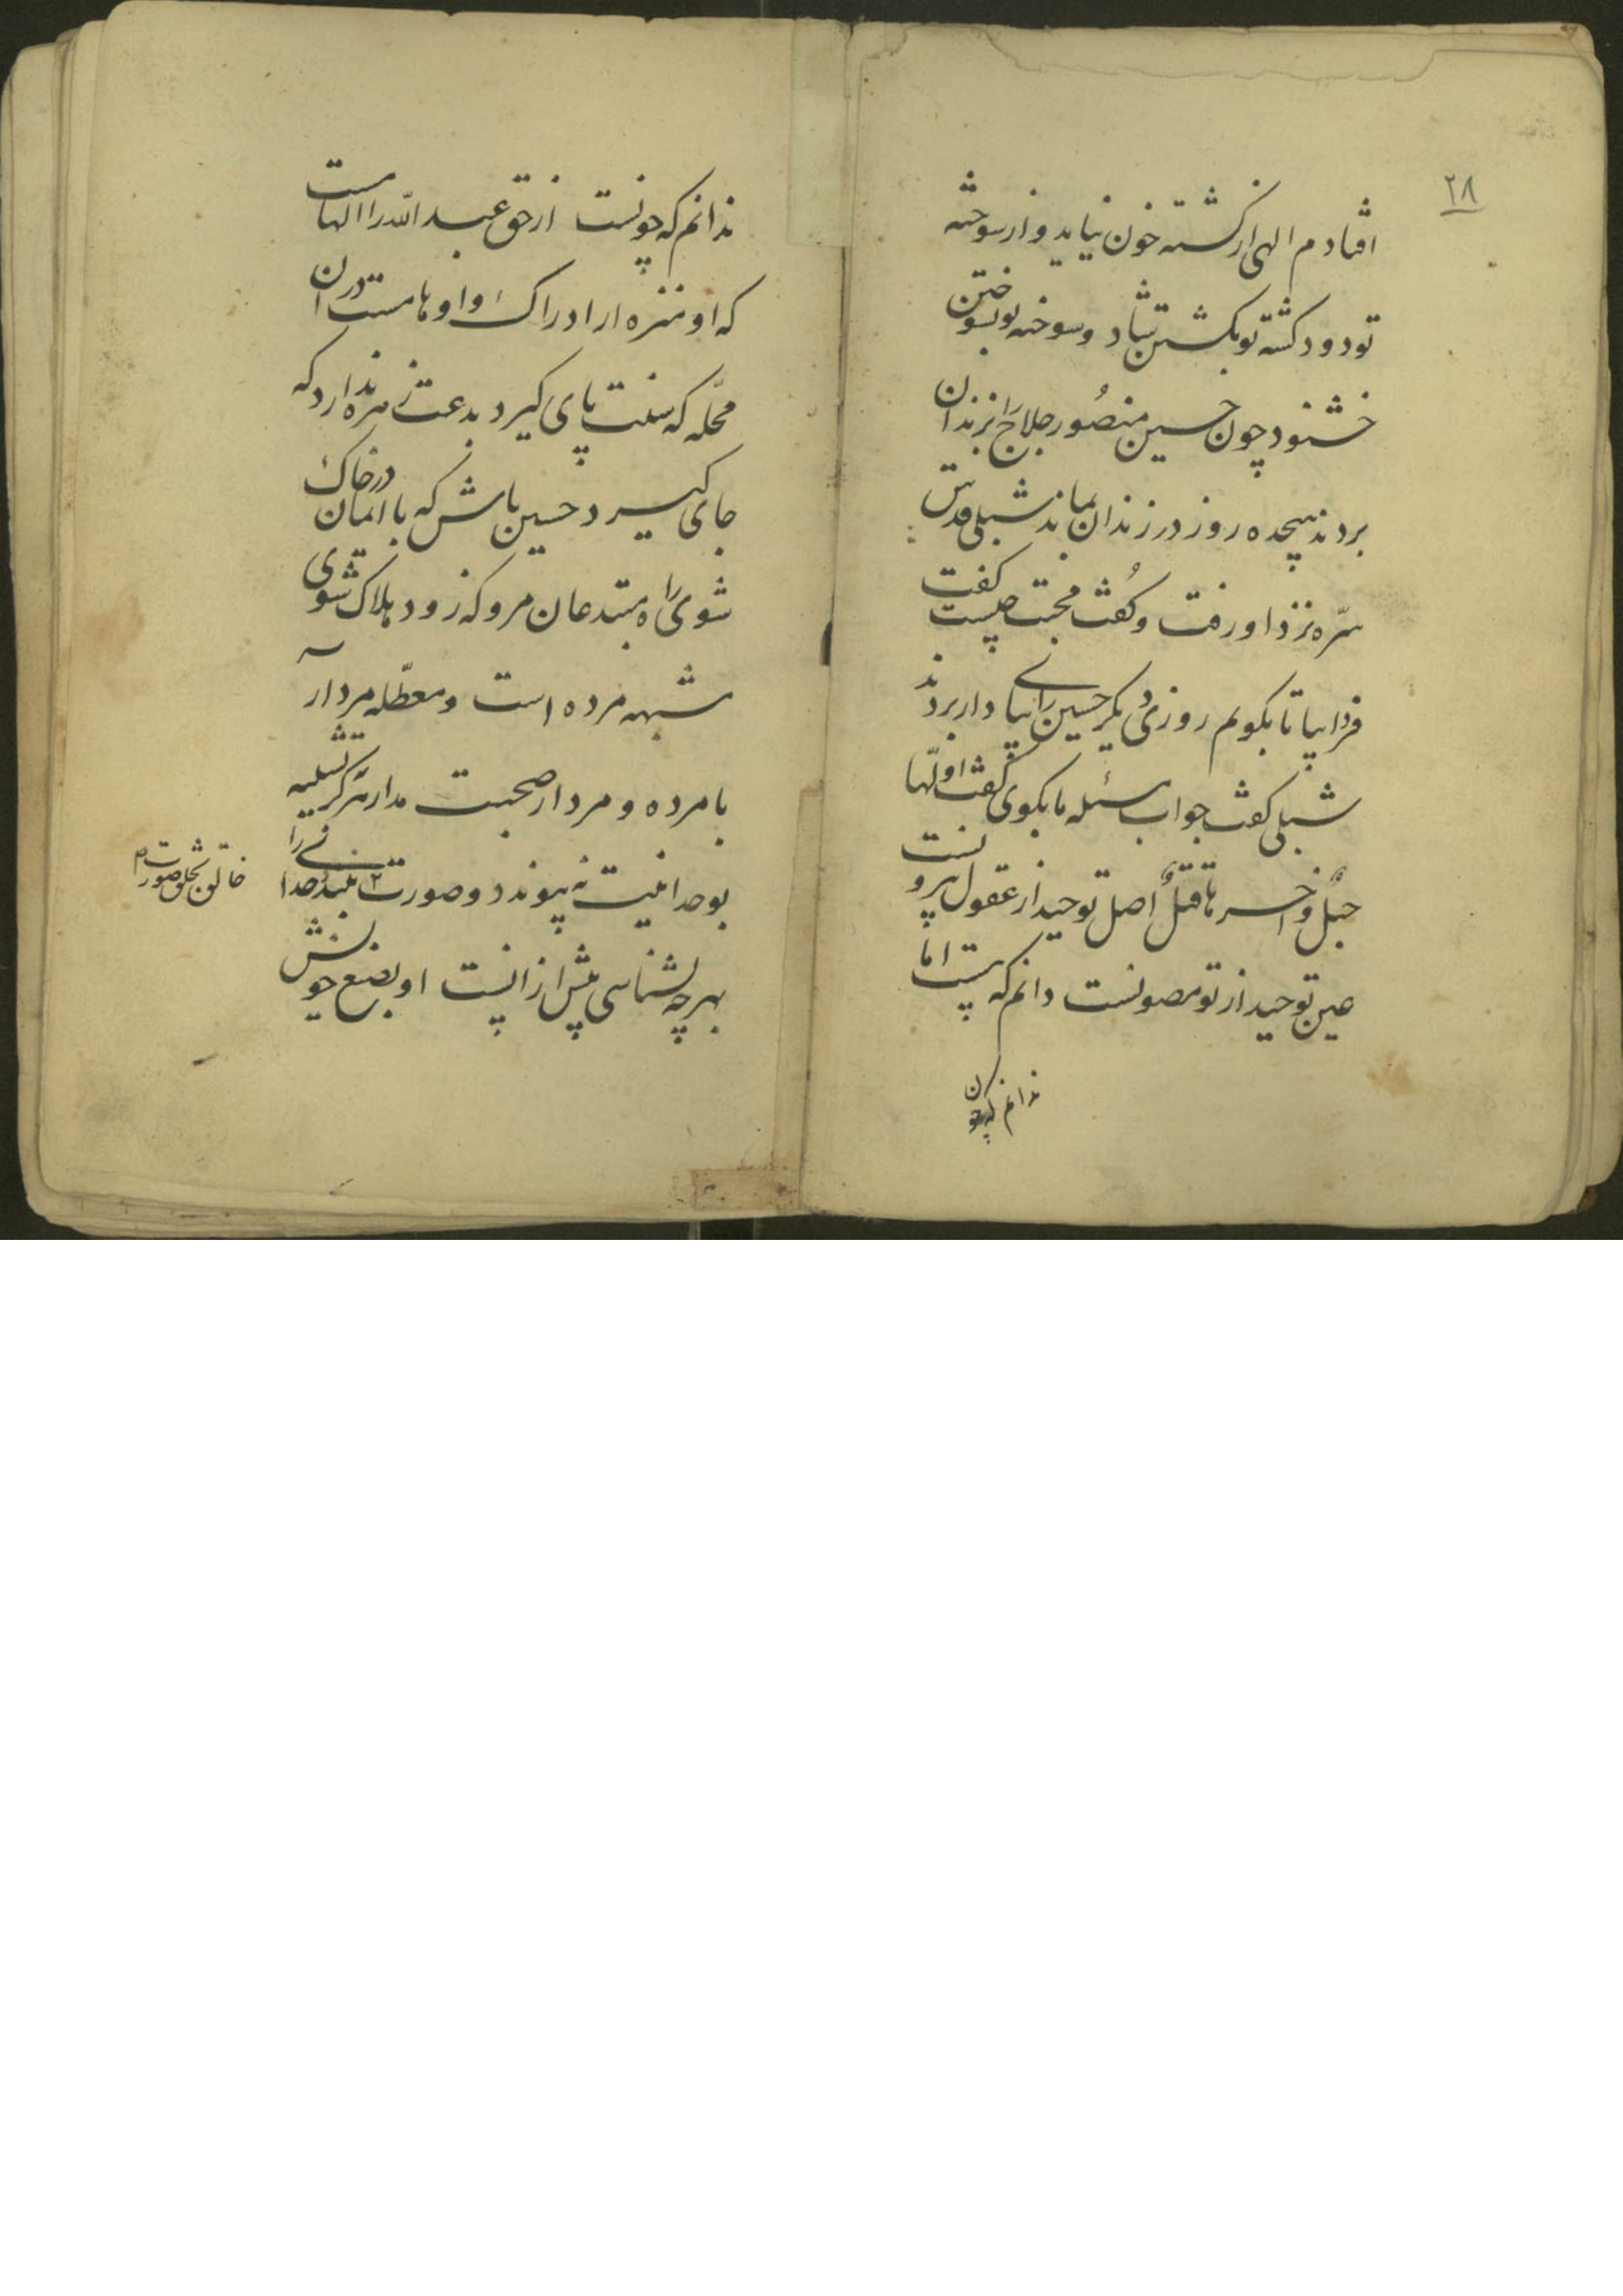 ۲۸
افتادم الهی از کشته خون نیاید و از سوخته
تو دود کشته تو بکشتن شاد و سوخته تو بسوختن
خشنود چون حسین منصور حلاج را بزندان
بردند هیجده روز در زندان بماند شبلی قدس
سره نزد او رفت و گفت محبت چیست گفت
فردا بیا تا بگویم روز دیگر حسین را بپای دار بردند
شبلی گفت جواب مسئله ما بگوی گفت اولها
حبل و اخرها قتل اصل توحید از عقول بیرونست
عین توحید از تو مصونست دانم که هست اما
ندانم که چون
ندانم که چونست از حق عبد الله را الهامست
که او منزه از ادراک و اوهامست در ان
محله که سنت پای گیرد بدعت زهره ندارد که
جای گیرد حسین باش که با ایمان در خاک
شوی راه مبتدعان مرو که زود هلاک شوی
مشبهه مرده است و معطله مردار
با مرده و مردار صحبت مدار هرگز تشبیه
بوحدانیت نه پیوندد و صورت نبندد خدا نی را
خالق بخلق صورت
بهرچه بشناسی بیش از انست او بصنع خویش